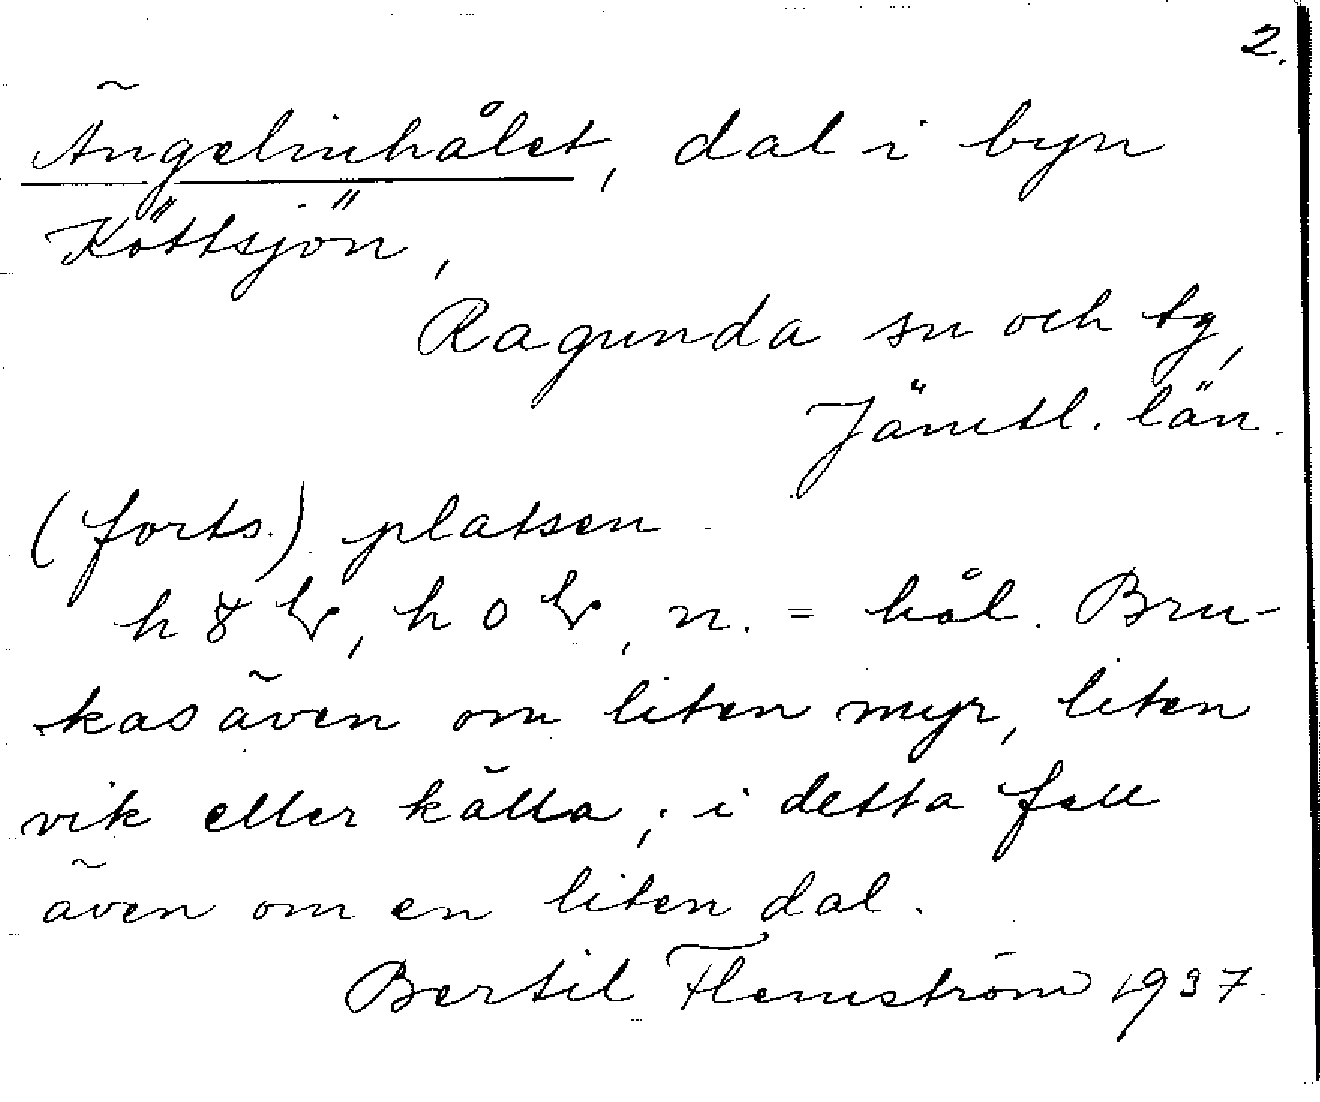 2.
Ängelinhålet, dal i byn
Köttsjön,
Ragunda sn och tg,
Jämtl. län.
(forts.) platsen
n. = hål. Bru-
kas även om liten myr, liten
vik eller källa; i detta fall
även om en liten dal.
Bertil Flemström 1937.